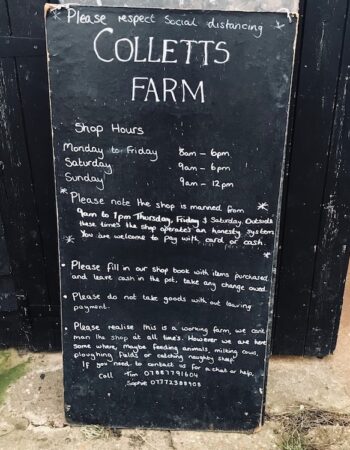 * Please respect Social distancing *
COLLETTS
FARM
Shop Hours
Monday to Friday 8am - 6pm
Saturday 9am - 6pm
Sunday 9am - 12pm
* Please note the shop is manned from *
9am to 1pm Thursday, Friday & Saturday. Outside
these times the shop operates an honesty system
* You are welcome to pay with card or cash. *
• Please fill in our shop book with items purchased
and leave cash in the pot, take any change owed
• Please do not take goods with out leaving
payment.
• Please realise this is a working farm, we cant
man the shop at all times. However we are here
some where, maybe feeding animals, milking cows,
ploughing fields or catching naughty sheep!
If you need to contact us for a chat or help,
Call Tim 07887791604
Sophie 07772388908